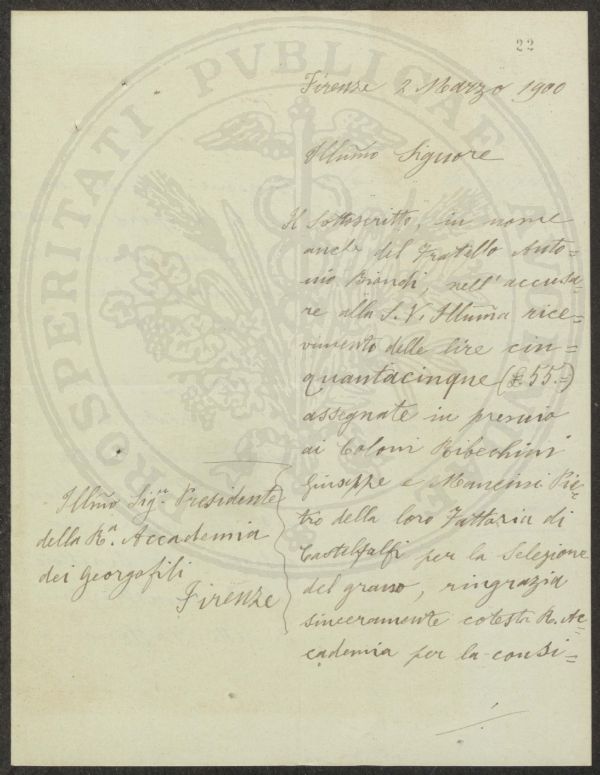 22
Firenze 2 Marzo 1900
Illũmo Signore
Il Sottoscritto, in nome
anche del Fratello Anto=
nio Biondi, nell'accusa=
re alla S. V. Illũma rice=
vimento delle lire cin=
quantacinque (£. 55.=)
assegnate in premio
ai Coloni Ribechini
Giuseppe e Mancini Pie=
tro della loro Fattoria di
Castelfalfi per la Selezione
del grano, ringrazia
sinceramente cotesta R. Ac=
cademia per la consi=
Illũo Sigr. Presidente
della Ra. Accademia
dei Georgofili
Firenze
PROSPERITATI PVBLICAE